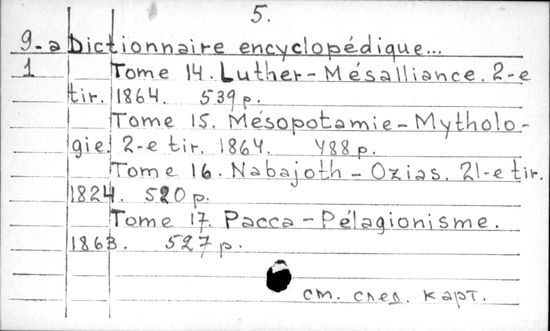 5.
9-a Dictionnaire encyclopédique...
1 Tome 14. Luther-Mésalliance. 2-e
tir. 1864. 539 p.
Tome 15. Mésopotamie-Mytholo-
gie. 2-e tir. 1864. 488 p.
Tome 16. Nabajoth-Ozias. 21-e tir.
1824. 520 p.
Tome 17. Pacca-Pélagionisme.
1863. 527 p.
см. след. карт.